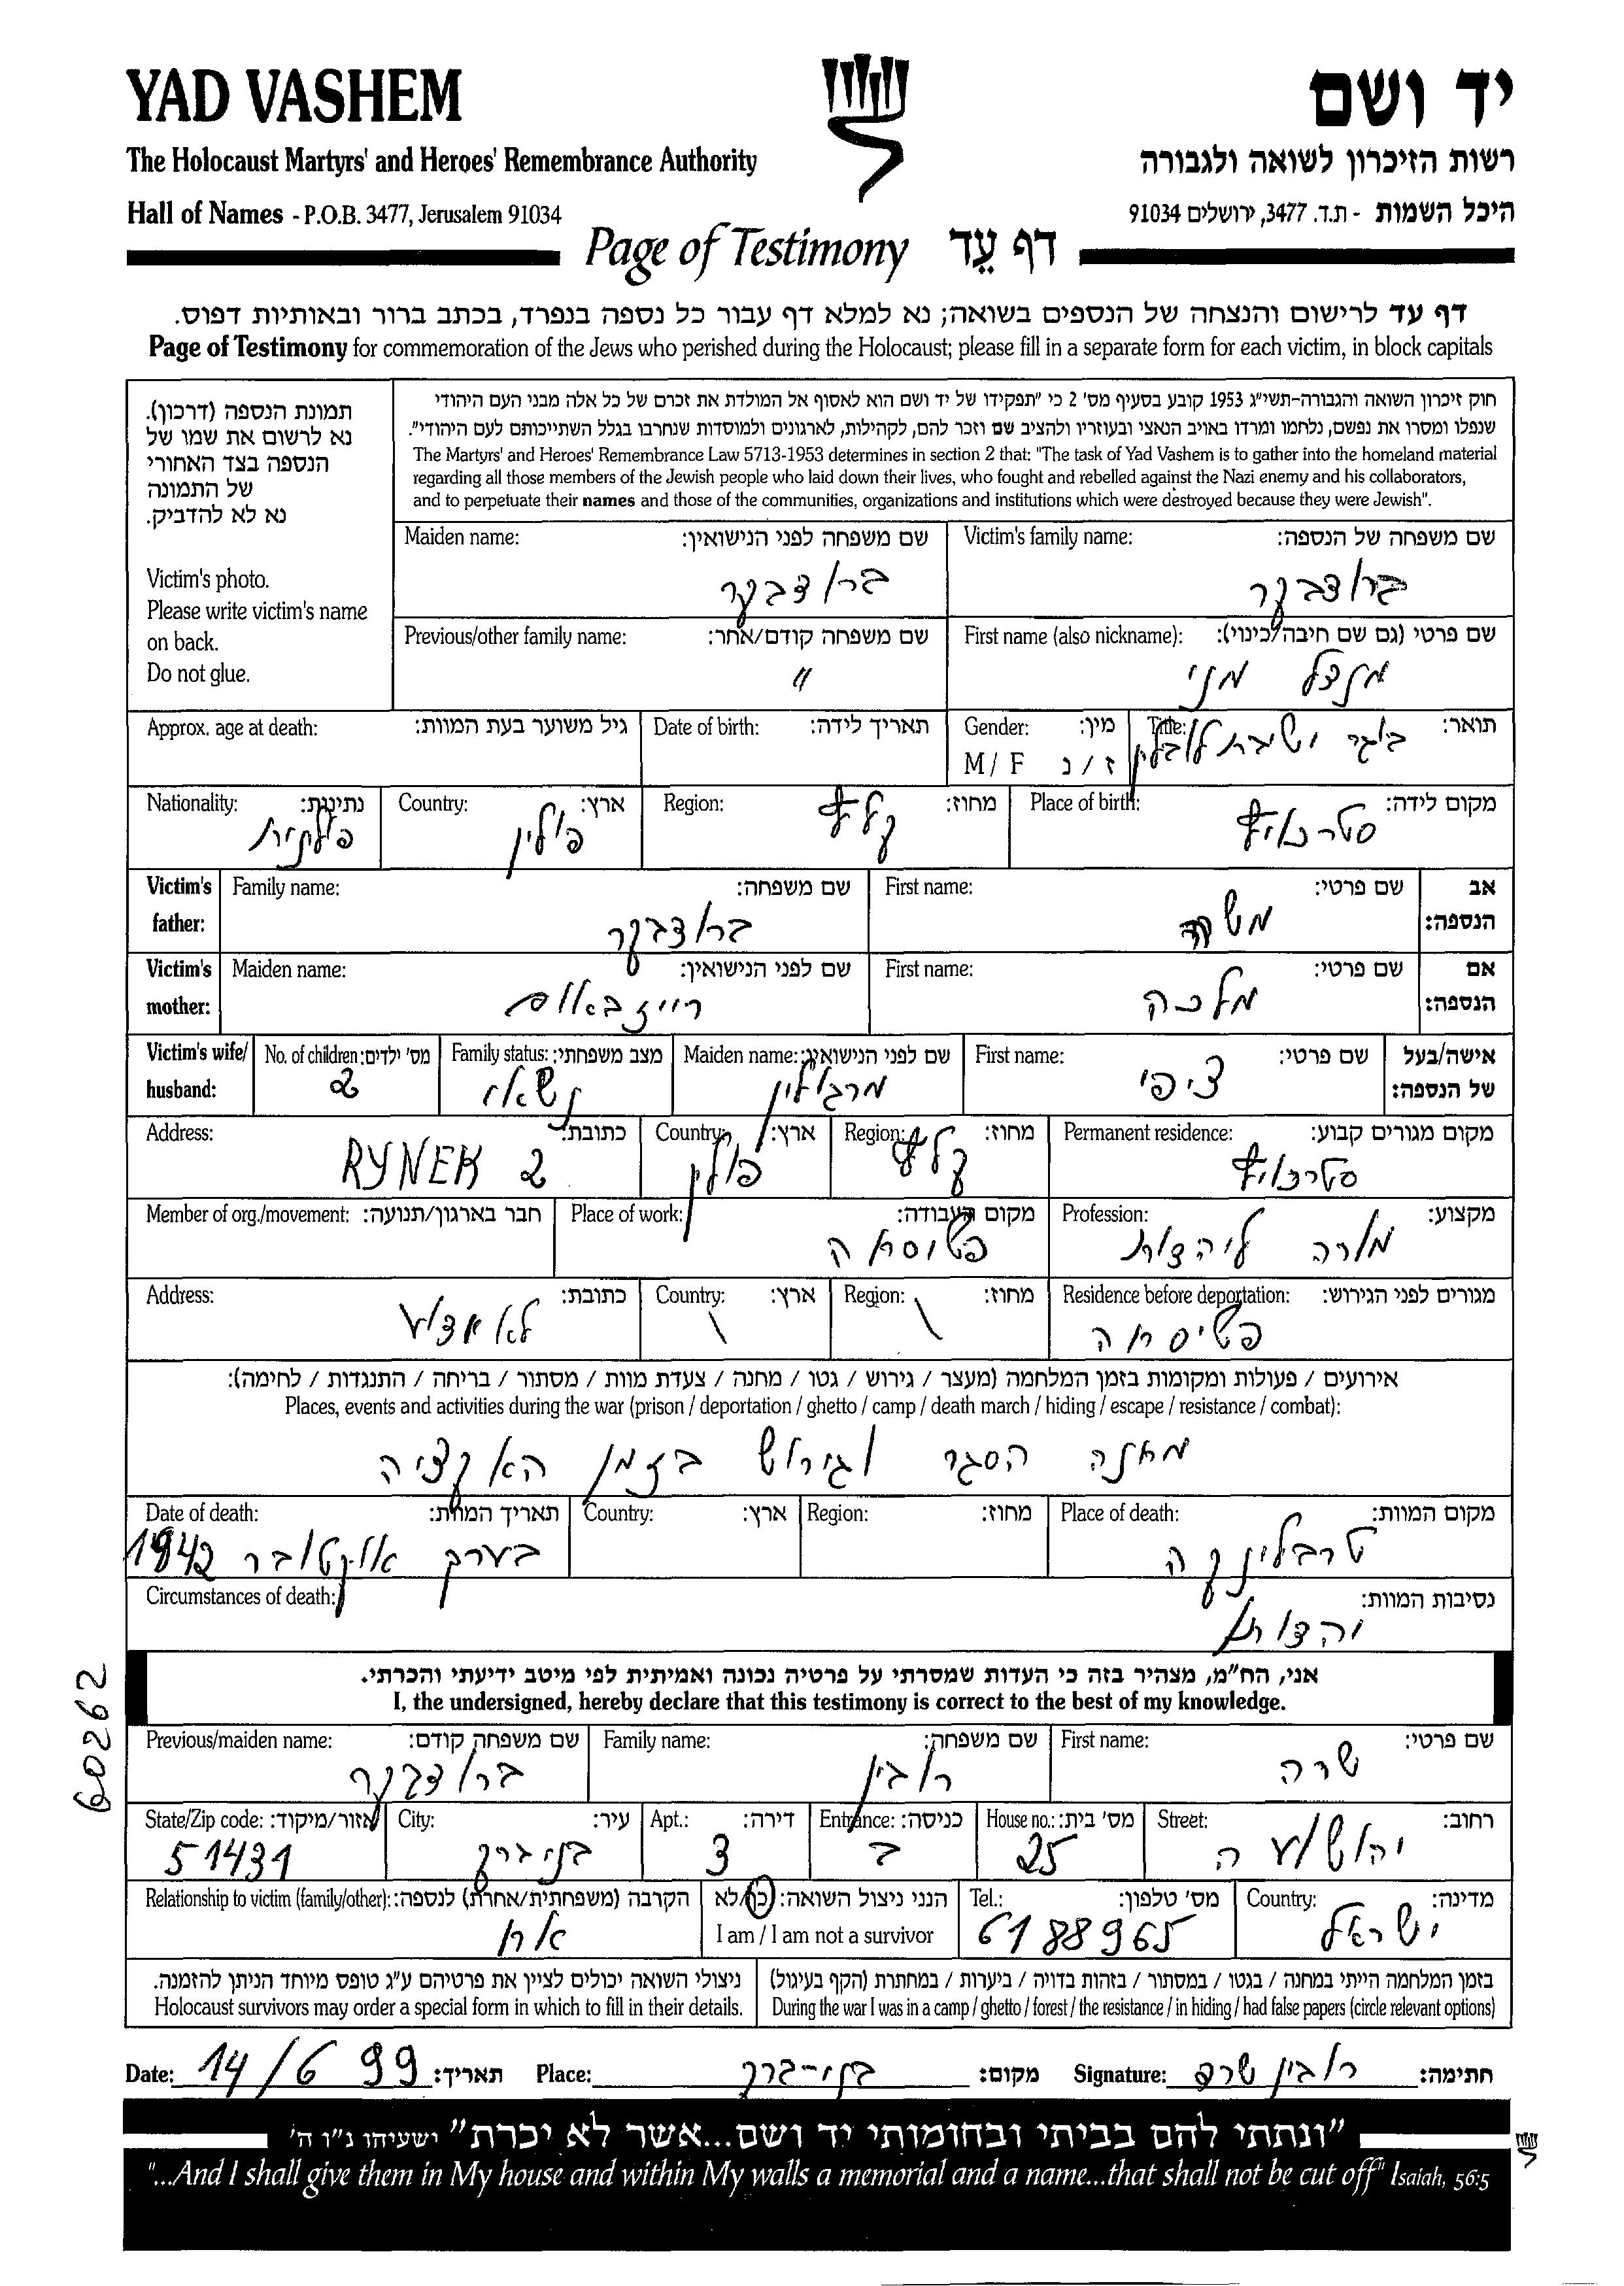 YAD VASHEM
יד ושם
The Holocaust Martyrs' and Heroes' Remembrance Authority
רשות הזיכרון לשואה ולגבורה
Hall of Names - P.O.B. 3477, Jerusalem 91034
היכל השמות - ת.ד. 3477, ירושלים 91034
Page of Testimony דף עֵד
דף עד לרישום והנצחה של הנספים בשואה; נא למלא דף עבור כל נספה בנפרד, בכתב ברור ובאותיות דפוס.
Page of Testimony for commemoration of the Jews who perished during the Holocaust; please fill in a separate form for each victim, in block capitals
תמונת הנספה (דרכון).
נא לרשום את שמו של
הנספה בצד האחורי
של התמונה
נא לא להדביק.
Victim's photo.
Please write victim's name
on back.
Do not glue.
חוק זיכרון השואה והגבורה-תשי"ג 1953 קובע בסעיף מס' 2 כי "תפקידו של יד ושם הוא לאסוף אל המולדת את זכרם של כל אלה מבני העם היהודי
שנפלו ומסרו את נפשם, נלחמו ומרדו באויב הנאצי ובעוזריו ולהציב שם וזכר להם, לקהילות, לארגונים ולמוסדות שנחרבו בגלל השתייכותם לעם היהודי".
The Martyrs' and Heroes' Remembrance Law 5713-1953 determines in section 2 that: "The task of Yad Vashem is to gather into the homeland material
regarding all those members of the Jewish people who laid down their lives, who fought and rebelled against the Nazi enemy and his collaborators,
and to perpetuate their names and those of the communities, organizations and institutions which were destroyed because they were Jewish".
Victim's family name: שם משפחה של הנספה:
ברודבקר
Maiden name: שם משפחה לפני הנישואין:
ברודבקר
First name (also nickname): שם פרטי (גם שם חיבה/כינוי):
מנדל מני
Previous/other family name: שם משפחה קודם/אחר:
"
Title: תואר:
בוגר ישיבת לובלין
Gender: מין:
M / F ז / נ
Date of birth: תאריך לידה:
Approx. age at death: גיל משוער בעת המוות:
Place of birth: מקום לידה:
Region: מחוז:
Country: ארץ:
פולין
Nationality: נתינות:
פולנית
Victim's father: אב הנספה:
First name: שם פרטי:
משה
Family name: שם משפחה:
ברודבקר
Victim's mother: אם הנספה:
First name: שם פרטי:
מלכה
Maiden name: שם לפני הנישואין:
רייזבאום
Victim's wife/husband: אישה/בעל של הנספה:
First name: שם פרטי:
ציפי
Maiden name: שם לפני הנישואין:
מרגולין
Family status: מצב משפחתי:
נשוי
No. of children: מס' ילדים:
2
Permanent residence: מקום מגורים קבוע:
Region: מחוז:
Country: ארץ:
פולין
Address: כתובת:
RYNEK 2
Profession: מקצוע:
מורה ליהדות
Place of work: מקום העבודה:
Member of org./movement: חבר בארגון/תנועה:
Residence before deportation: מגורים לפני הגירוש:
Region: מחוז:
Country: ארץ:
Address: כתובת:
לא ידוע
אירועים / פעולות ומקומות בזמן המלחמה (מעצר / גירוש / גטו / מחנה / צעדת מוות / מסתור / בריחה / התנגדות / לחימה):
Places, events and activities during the war (prison / deportation / ghetto / camp / death march / hiding / escape / resistance / combat):
מחנה הסגר וגירוש בזמן האקציה
Place of death: מקום המוות:
טרבלינקה
Region: מחוז:
Country: ארץ:
Date of death: תאריך המוות:
בערך אוקטובר 1942
Circumstances of death: נסיבות המוות:
אני, הח"מ, מצהיר בזה כי העדות שמסרתי על פרטיה נכונה ואמיתית לפי מיטב ידיעתי והכרתי.
I, the undersigned, hereby declare that this testimony is correct to the best of my knowledge.
60262
First name: שם פרטי:
שרה
Family name: שם משפחה:
רובין
Previous/maiden name: שם משפחה קודם:
ברודבקר
Street: רחוב:
יהושע
House no.: מס' בית:
25
Entrance: כניסה:
ב
Apt.: דירה:
3
City: עיר:
בני ברק
State/Zip code: אזור/מיקוד:
51431
Country: מדינה:
ישראל
Tel.: מס' טלפון:
6188965
הנני ניצול השואה: כן/לא
I am / I am not a survivor
Relationship to victim (family/other): הקרבה (משפחתית/אחרת) לנספה:
אח
בזמן המלחמה הייתי במחנה / בגטו / במסתור / בזהות בדויה / ביערות / במחתרת (הקף בעיגול)
During the war I was in a camp / ghetto / forest / the resistance / in hiding / had false papers (circle relevant options)
ניצולי השואה יכולים לציין את פרטיהם ע"ג טופס מיוחד הניתן להזמנה.
Holocaust survivors may order a special form in which to fill in their details.
Date: 14/6 99 תאריך: Place: בני-ברק מקום: Signature: רובין שרה חתימה:
"ונתתי להם בביתי ובחומותי יד ושם...אשר לא יכרת" ישעיהו נ"ו ה'
"...And I shall give them in My house and within My walls a memorial and a name...that shall not be cut off" Isaiah, 56:5